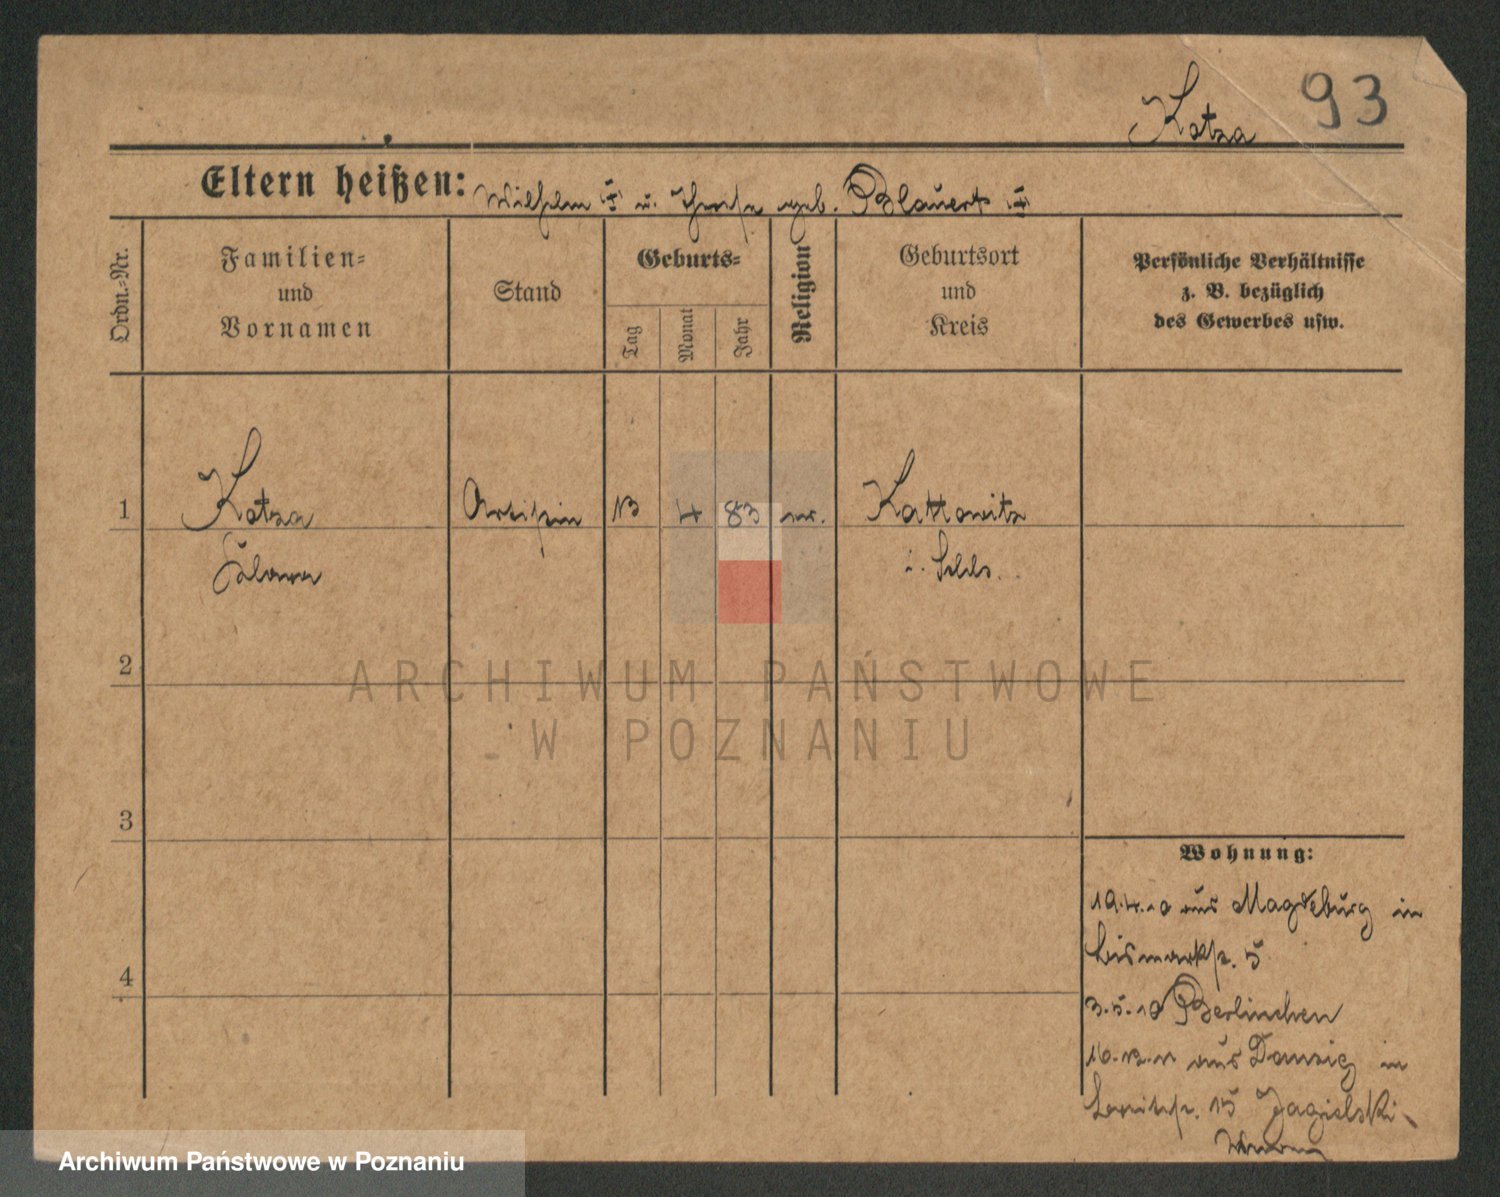 Kotza 93
Eltern heißen: Wilhelm u. geb. Blauert
Ordn.-Nr.
Familien- und Vornamen
Stand
Geburts-
Tag
Monat
Jahr
Religion
Geburtsort und Kreis
Persönliche Verhältnisse
z. B. bezüglich
des Gewerbes usw.
1 Kotza Artistin 13 4 83 Kattowitz
i. Schls.
2
ARCHIWUM PAŃSTWOWE
W POZNANIU
3
Wohnung:
19.4.10 aus Magdeburg in
Bismarkstr. 5
4
3.5.10 Berlinchen
16.12.11 aus Danzig in
15 Jagielski
Archiwum Państwowe w Poznaniu